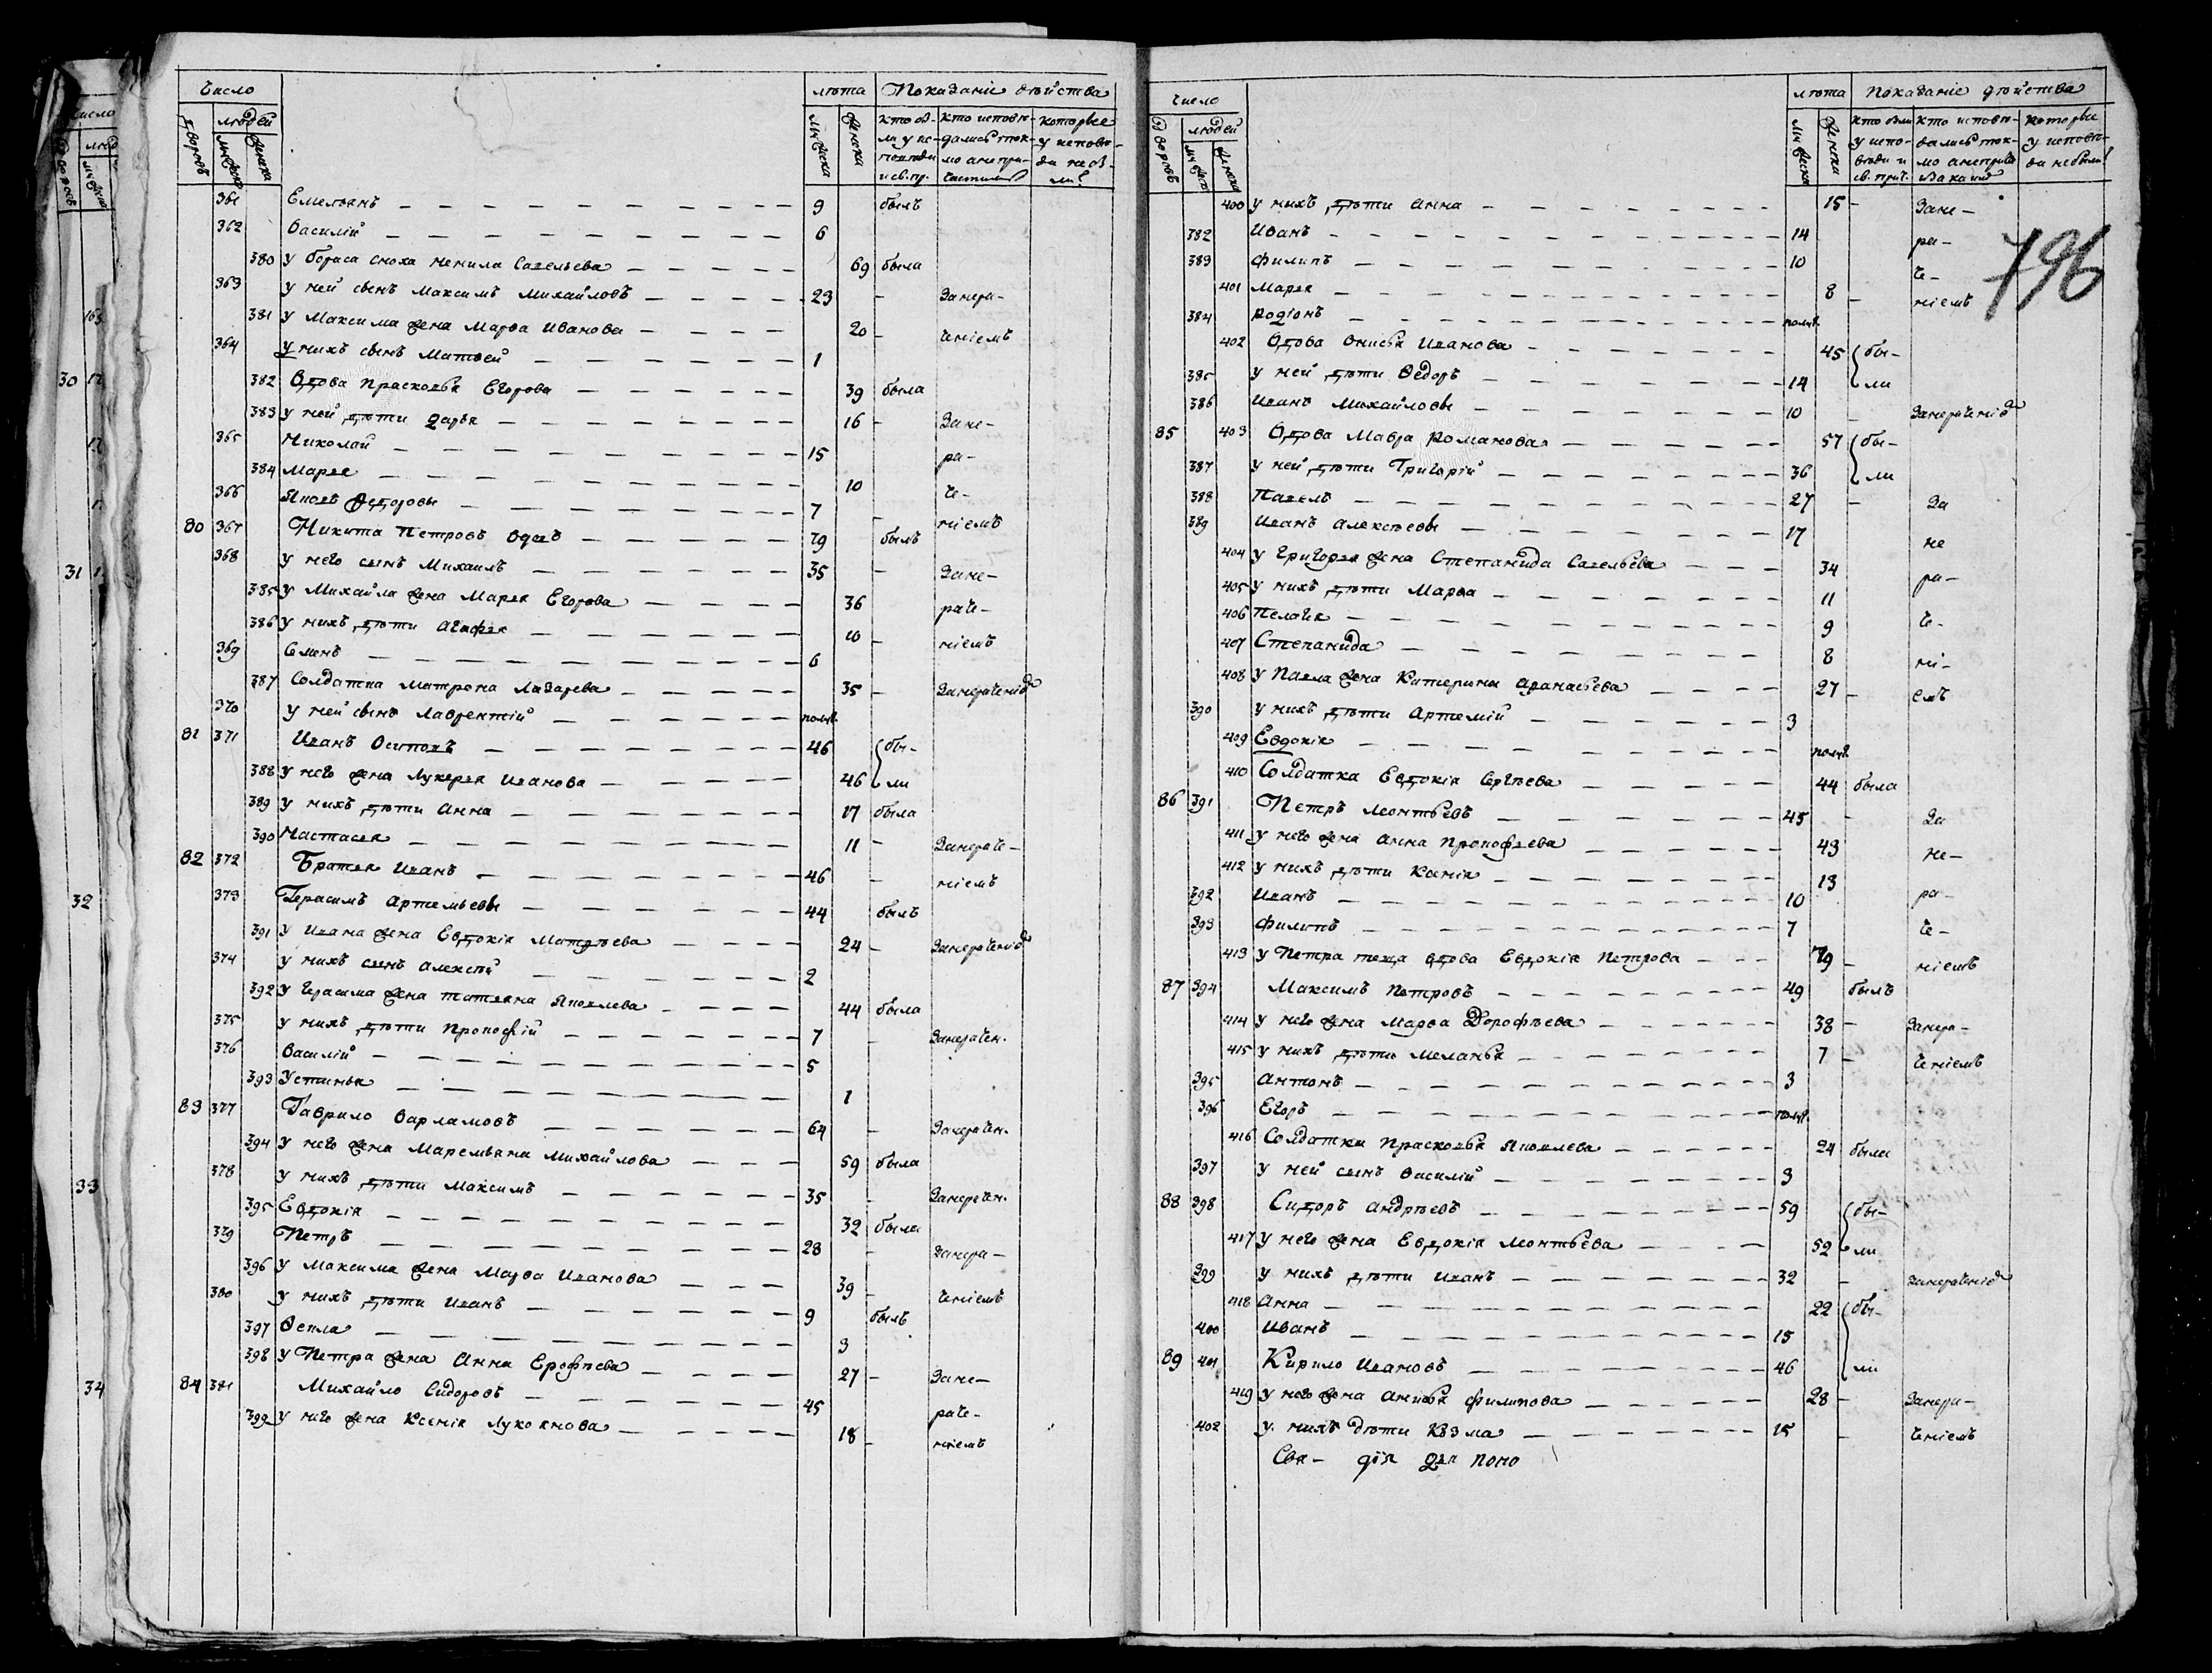 Число
лѣта Показаніе дѣйства
дворовъ людей
мужеска женска
мужеска женска
кто бы- кто исповѣ- которые
ли у ис- дались ток- у исповѣ-
повѣди мо а не при- ди не бы-
и св. пр. частились ли?
361 Емельянъ 9 былъ
362 Василій 6
380 у Бориса сноха Ненила Савельева 69 была
363 у ней сынъ Максимъ Михайловъ 23 - Занера-
381 у Максима жена Марѳа Иванова 20 - ченіемъ
364 у нихъ сынъ Матвей 1
382 Вдова Прасковья Егорова 39 была
383 у ней дѣти Дарья 16 - Зане-
365 Николай 15 ра-
384 Марья 10 че-
366 Яковъ Ѳедоровы 7 - ніемъ
80 367 Никита Петровъ вдовъ 79 былъ
368 у него сынъ Михаилъ 35 - Зане-
385 у Михайла жена Марья Егорова 36 раче-
386 у нихъ дѣти Агафья 10 - ніемъ
369 Семенъ 6
387 Солдатка Матрона Лазарева 35 - Занераченіе
370 у ней сынъ Лаврентій полуг.
81 371 Иванъ Осиповъ 46 бы-
388 у него жена Лукерья Иванова 46 ли
389 у нихъ дѣти Анна 17 была
390 Настасья 11 - Занераче-
82 372 Братья Иванъ 46 - ніемъ
373 Герасимъ Артемьевы 44 былъ
391 у Ивана жена Евдокія Матвѣева 24 - Занераченіе
374 у нихъ сынъ Алексѣй 2
392 у Герасима жена Татьяна Яковлева 44 была
375 у нихъ дѣти Прокофій 7 - Занерачен.
376 Василій 5
393 Устинья 1
83 377 Гаврило Варламовъ 64 - Занерачен.
394 у него жена Маремьяна Михайлова 59 была
378 у нихъ дѣти Максимъ 35 - Занерачен.
395 Евдокія 32 была
379 Петръ 28 - Занера-
396 у Максима жена Марѳа Иванова 39 - ченіемъ
380 у нихъ дѣти Иванъ 9 былъ
397 Ѳекла 3
398 у Петра жена Анна Ерофѣева 27 - Зане-
84 381 Михайло Сидоровъ 45 раче-
399 у него жена Ксенія Лукоянова 18 - ніемъ
Число
лѣта Показаніе дѣйства
дворовъ людей
мужеска женска
мужеска женска
кто были кто исповѣ- которые
у испо- дались ток- у исповѣ-
вѣди и мо а не ди не были?
св. прич.
400 у нихъ дѣти Анна 15 - Зане-
382 Иванъ 14 ра-
383 Филипъ 10 че-
401 Марья 8 - ніемъ
796
384 Родіонъ полуг.
402 Вдова Онисья Иванова 45 бы-
385 у ней дѣти Ѳедоръ 14 ли
386 Иванъ Михайловы 10 - Занераченіе
85 403 Вдова Мавра Романова 57 бы-
387 у ней дѣти Григорій 36 ли
388 Павелъ 27 - За
389 Иванъ Алексѣевы 17 не
404 у Григорья жена Степанида Савельева 34 ра-
405 у нихъ дѣти Марѳа 11
406 Пелагія 9 че-
407 Степанида 8 ні-
408 у Павла жена Катерина Аѳанасьева 27 - емъ
390 у нихъ дѣти Артемій 3
409 Евдокія полуг.
410 Солдатка Евдокія Сергѣева 44 была
86 391 Петръ Леонтьевъ 45 - За
411 у него жена Анна Прокофьева 43 не-
412 у нихъ дѣти Ксенія 13 ра-
392 Иванъ 10
393 Филипъ 7 че-
413 у Петра теща вдова Евдокія Петрова 79 - ніемъ
87 394 Максимъ Петровъ 49 былъ
414 у него жена Марѳа Дорофѣева 38 - Занера-
415 у нихъ дѣти Меланья 7 - ченіемъ
395 Антонъ 3
396 Егоръ полуг.
416 Солдатка Прасковья Яковлева 24 была
397 у ней сынъ Василій 3
88 398 Сидоръ Андрѣевъ 59 бы-
417 у него жена Евдокія Леонтьева 52 ли
399 у нихъ дѣти Иванъ 32 - Занераченіе
418 Анна 22 бы-
400 Иванъ 15
89 401 Кирило Ивановъ 46 ли
419 у него жена Анисья Филипова 28 - Занера-
402 у нихъ дѣти Козма 15 - ченіемъ
Свя- дія Дья поно